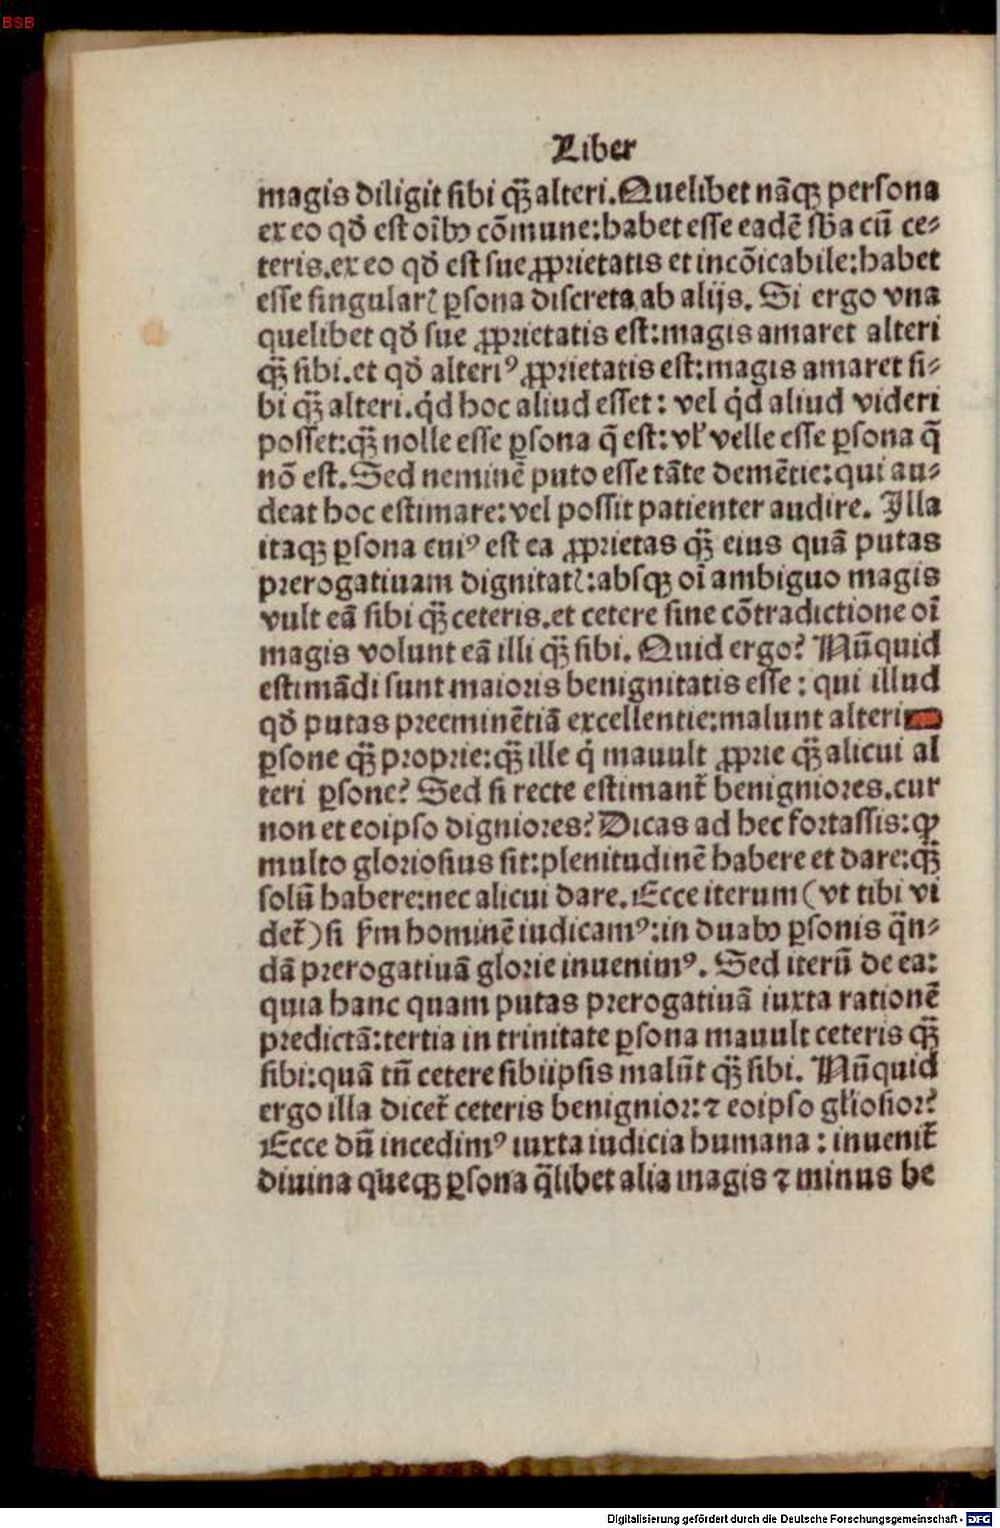 BSB
Liber
magis diligit sibi qꝫ̃ alteri. Quelibet nãqꝫ persona
ex eo qð est oĩbꝰ cõmune: habet esse eadẽ sb̃a cũ ce⸗
teris. ex eo qð est sue ꝓprietatis et incõicabile: habet
esse singularꝭ ꝑsona discreta ab alijs. Si ergo vna
quelibet qð sue ꝓprietatis est: magis amaret alteri
qꝫ̃ sibi. et qð alteriꝰ ꝓprietatis est: magis amaret si⸗
bi qꝫ̃ alteri. qͥd hoc aliud esset: vel qͥd aliud videri
posset: qꝫ̃ nolle esse ꝑsona q̃ est: vl̓ velle esse ꝑsona q̃
nõ est. Sed neminẽ puto esse tãte demẽtie: qui au⸗
deat hoc estimare: vel possit patienter audire. Illa
itaqꝫ ꝑsona cuiꝰ est ea ꝓprietas qꝫ̃ eius quã putas
prerogatiuam dignitatꝭ: absqꝫ oĩ ambiguo magis
vult eã sibi qꝫ̃ ceteris. et cetere sine cõtradictione oĩ
magis volunt eã illi qꝫ̃ sibi. Quid ergo? Nũquid
estimãdi sunt maioris benignitatis esse: qui illud
qð putas preeminẽtiã excellentie: malunt alteri
ꝑsone qꝫ̃ proprie: qꝫ̃ ille qͥ mauult ꝓprie qꝫ̃ alicui al
teri ꝑsone? Sed si recte estimant̃ benigniores. cur
non et eoipso digniores? Dicas ad hec fortassis: ꝙ
multo gloriosius sit: plenitudinẽ habere et dare: qꝫ̃
solũ habere: nec alicui dare. Ecce iterum (vt tibi vi
det̃) si ẜm hominẽ iudicamꝰ: in duabꝰ ꝑsonis q̃n⸗
dã prerogatiuã glorie inuenimꝰ. Sed iterũ de ea:
quia hanc quam putas prerogatiuã iuxta rationẽ
predictã: tertia in trinitate ꝑsona mauult ceteris qꝫ̃
sibi: quã tñ cetere sibiipsis malũt qꝫ̃ sibi. Nũquid
ergo illa dicet̃ ceteris benignior: ⁊ eoipso gl̓iosior?
Ecce dũ incedimꝰ iuxta iudicia humana: inuenit̃
diuina queqꝫ ꝑsona q̃libet alia magis ⁊ minus be
Digitalisierung gefördert durch die Deutsche Forschungsgemeinschaft - DFG